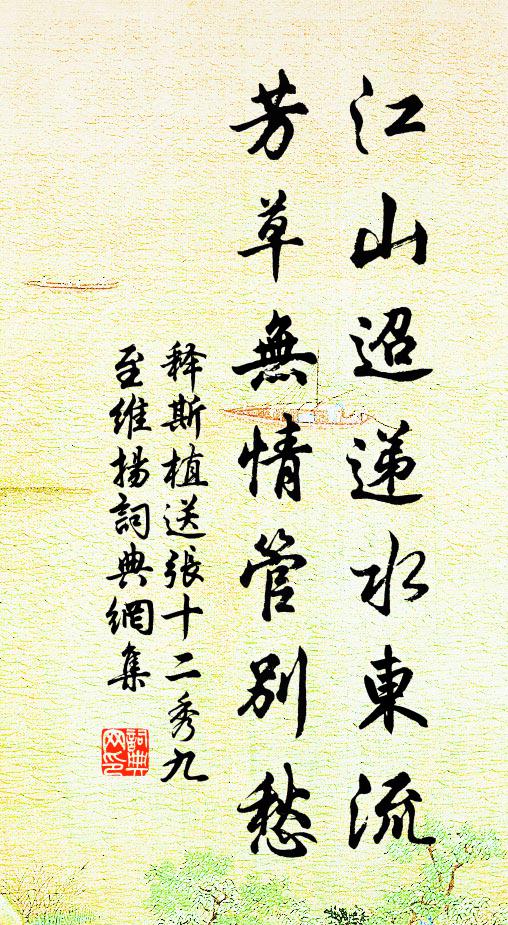 江山迢递水東流
芳草無情管別愁
释斯植送張十二秀九
至維揚詞典網集
詞典
网印